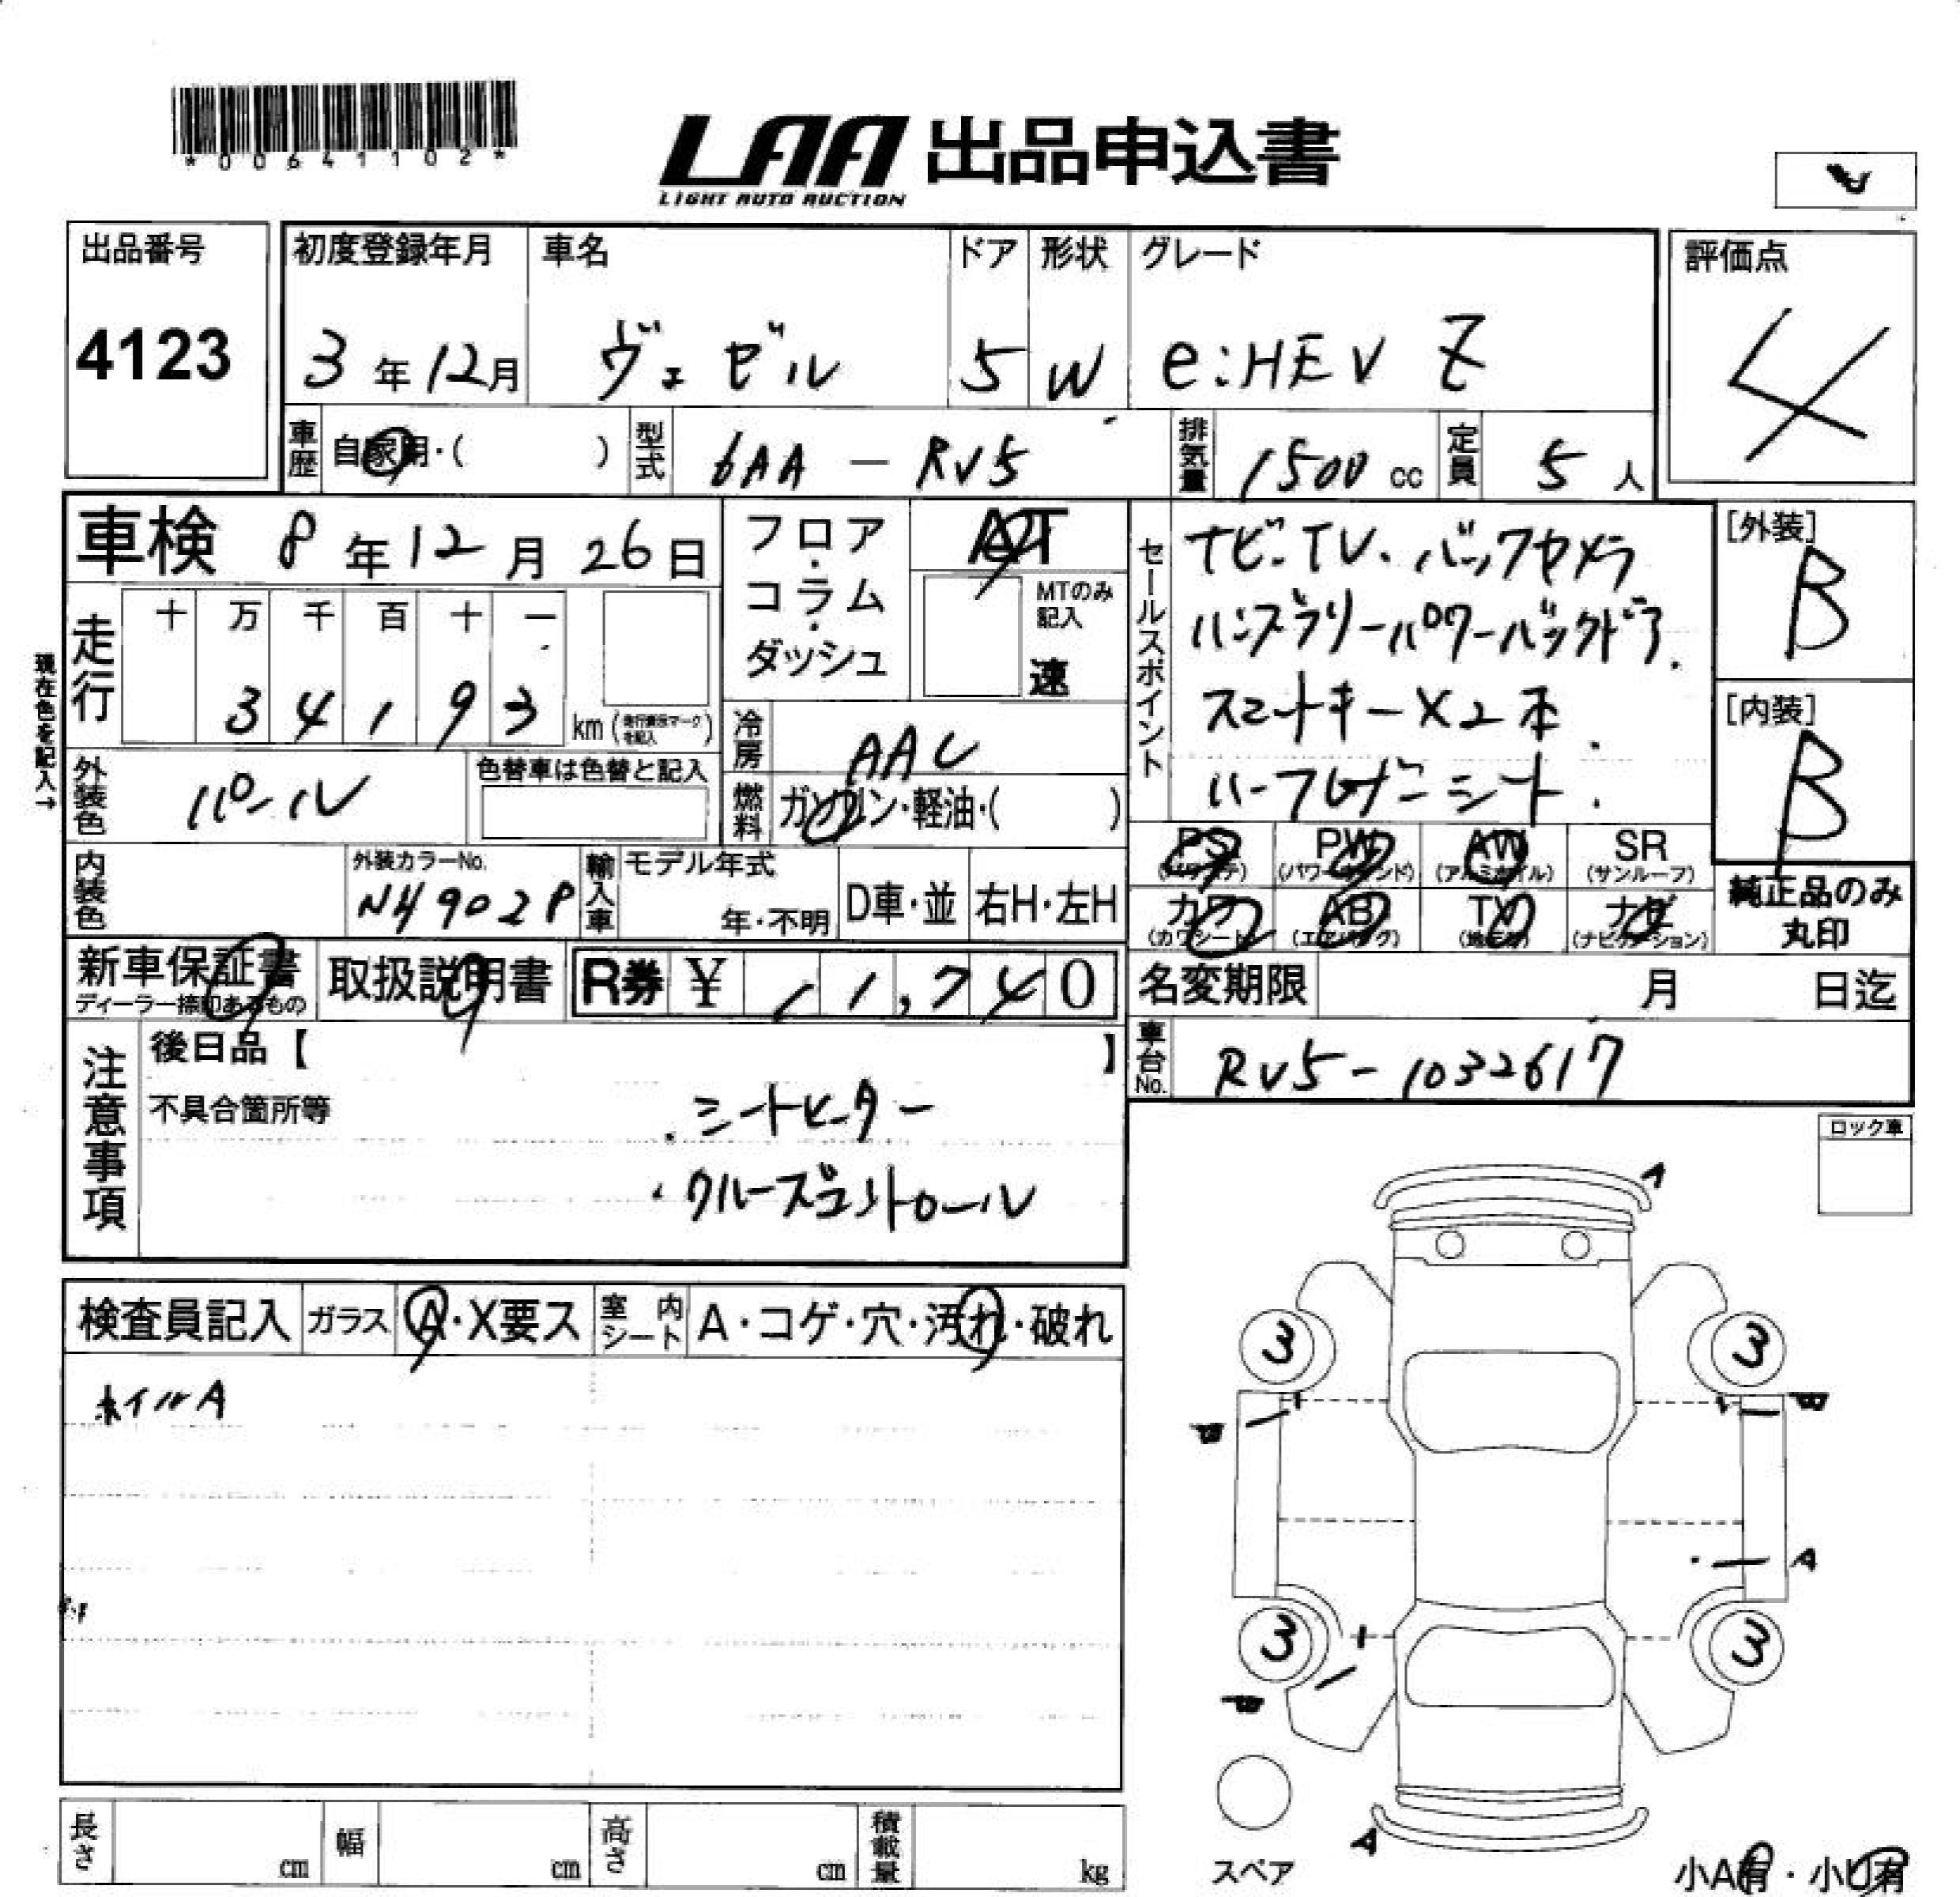 *00641102*
LAA 出品申込書
LIGHT AUTO AUCTION
出品番号 4123
初度登録年月 3年12月
車名 ヴェゼル
ドア 5
形状 W
グレード e:HEV Z
評価点 4
車歴 自家用・( )
型式 6AA-RV5
排気量 1500 cc
定員 5人
車検 8年12月26日
フロア・コラム・ダッシュ
AT
MTのみ記入 速
セールスポイント
ナビ・TV・バックカメラ
ハンズフリーパワーバックドア.
スマートキー×2本.
ハーフレザーシート.
[外装] B
[内装] B
現在色を記入→
走行 十 万 千 百 十 一
34193 km (走行表示マークを記入)
冷房 AAC
外装色 パール
色替車は色替と記入
燃料 ガソリン・軽油・( )
PS (パワステ) PW (パワーウインド) AW (アルミホイル) SR (サンルーフ)
カワ (カワシート) AB (エアバック) TV ナビ (ナビゲーション)
純正品のみ丸印
内装色
外装カラーNo. NH902P
輸入車 モデル年式 年・不明 D車・並 右H・左H
新車保証書
ディーラー捺印あるもの
取扱説明書
R券 ¥11,740
名変期限 月 日迄
車台No. RV5-1032617
注意事項
後日品【 】
不具合箇所等
・シートヒーター
・クルーズコントロール
ロック車
検査員記入 ガラス A・X要ス 室内シート A・コゲ・穴・汚れ・破れ
ホイルA
A
3 3
A
3 3
A
スペア
小A有・小U有
長さ cm 幅 cm 高さ cm 積載量 kg